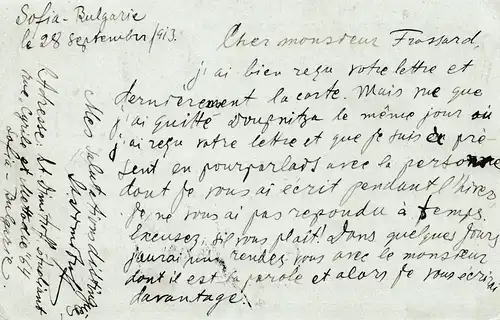 Sofia-Bulgarie
le 28 septembre/913.
Cher monsieur Frossard,
j'ai bien reçu votre lettre et
dernierement la carte. Mais vue que
j'ai quitté Doupnitza le même jour où
j'ai reçu votre lettre et que je suis à pré-
sent en pourparlads avec la personne
dont je vous ai ecrit pendant l'hiver
Je ne vous ai pas repondu à temps.
Excusez, s'il vous plait! Dans quelques jours
j'aurai un rendez vous avec le monsieur
dont il est la parole et alors je vous ecrirai
davantage.
Mes salutations distinguées
L'Adresse: St. Dimitroff, étudiant
rue Cyrile et Methodie 64
Sofia-Bulgarie.